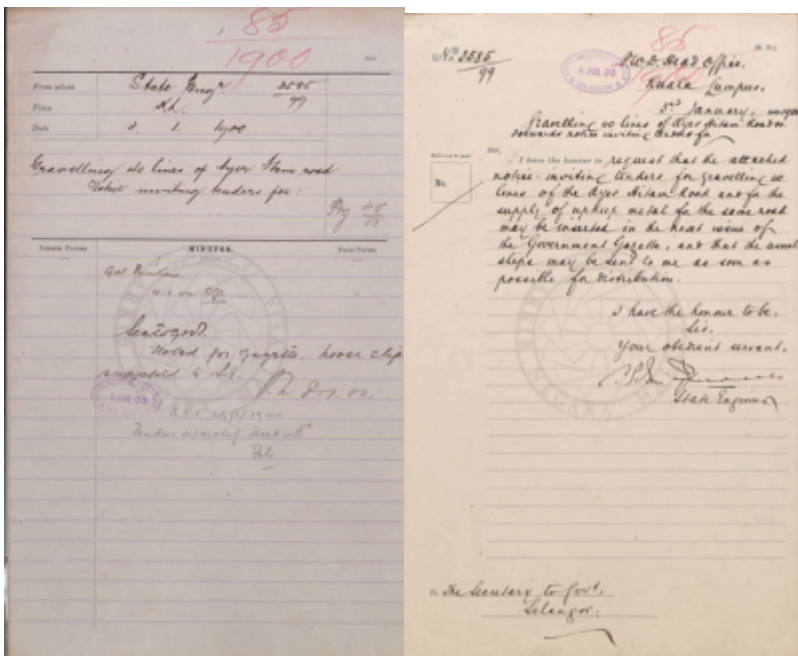 85
1900
From whom
State Engr. 3585/99
Place
Kh.
Date
3. 1. 1900
Gravelling 20 lines of Ayer Itam road
Notice inviting tenders for:
45
Former Papers.
MINUTES.
Future Papers.
Sec to Govt.
Noted for gazette. loose slips
supplied to S.E.
4 JAN. 00
NEGARA
85
1900
No. 3585/99
4 JAN. 00
P.W.D. Head Office.
Kuala Lumpur.
3rd January, 1900
Gravelling 20 lines of Ayer Hitam Road
forwards notice inviting tenders for
Sir,
I have the honour to request that the attached
notice inviting tenders for gravelling 20
lines of the Ayer Hitam Road and for the
supply of upkeep metal for the same road
may be inserted in the next issue of
the Government Gazette, and that the usual
slips may be sent to me as soon as
possible for distribution.
No.
I have the honour to be,
Sir,
Your obedient servant,
State Engineer
NEGARA
The Secretary to Govt.
Selangor.